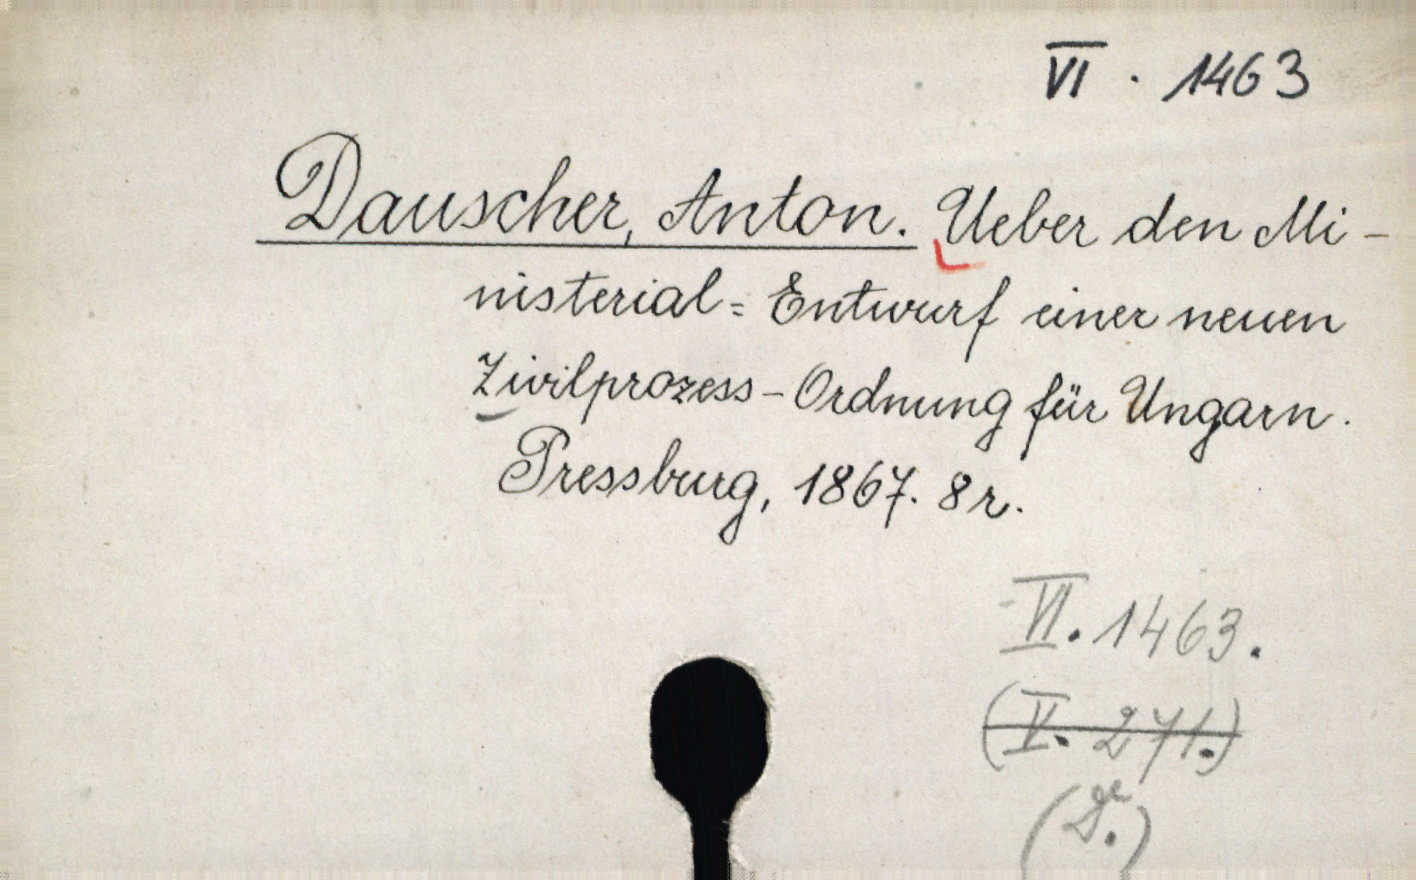 VI · 1463
Dauscher, Anton. Ueber den Mi-
nisterial=Entwurf einer neuen
Zivilprozess-Ordnung für Ungarn.
Pressburg, 1867. 8r.
VI. 1463.
(V. 271.)